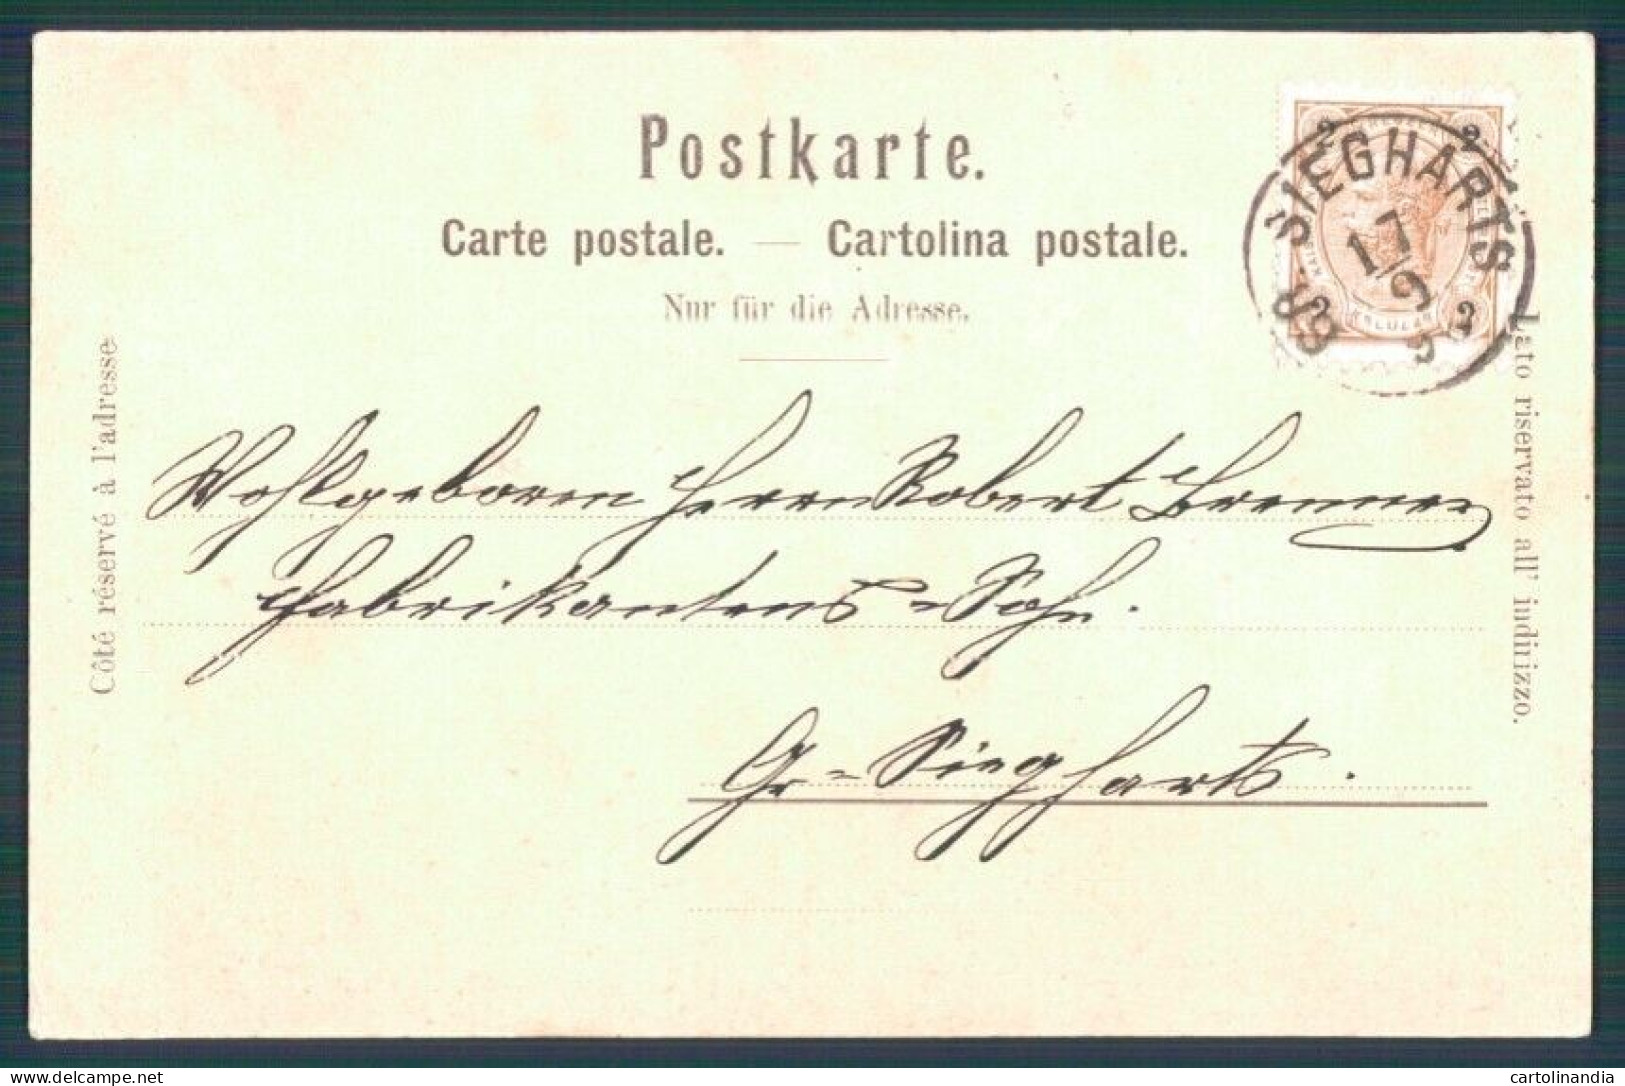 Postkarte.
Carte postale. — Cartolina postale.
Nur für die Adresse.
GR. SIEGHARTS
17/9
2 2
2 2
Côté réservé à l'adresse
Lato riservato all' indirizzo.
Wohlgeboren Herrn Robert Brenner
Fabrikantens-Sohn.
Gr-Siegharts.
delcampe.net
cartolinandia